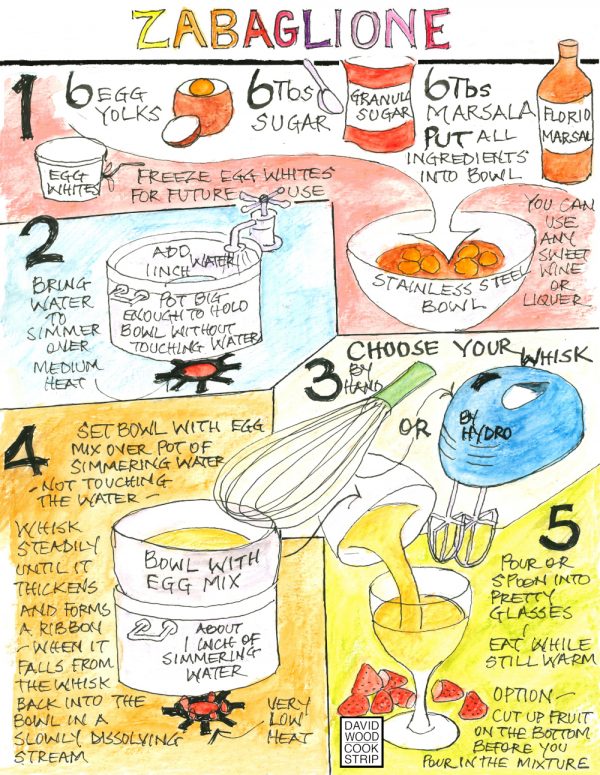 ZABAGLIONE
1
6 EGG
YOLKS
6 Tbs
SUGAR
GRANUL
SUGAR
6 Tbs
MARSALA
PUT ALL
INGREDIENTS
INTO BOWL
FLORIO
MARSAL
EGG
WHITES
FREEZE EGG WHITES
FOR FUTURE USE
YOU CAN
USE
ANY
SWEET
WINE
OR
LIQUER
STAINLESS STEEL
BOWL
2
BRING
WATER
TO
SIMMER
OVER
MEDIUM
HEAT
ADD
1 INCH WATER
POT BIG
ENOUGH TO HOLD
BOWL WITHOUT
TOUCHING WATER
3
CHOOSE YOUR WHISK
BY
HAND
OR
BY
HYDRO
4
SET BOWL WITH EGG
MIX OVER POT OF
SIMMERING WATER
- NOT TOUCHING
THE WATER -
WHISK
STEADILY
UNTIL IT
THICKENS
AND FORMS
A RIBBON
- WHEN IT
FALLS FROM
THE WHISK
BACK INTO THE
BOWL IN A
SLOWLY DISSOLVING
STREAM
BOWL WITH
EGG MIX
ABOUT
1 INCH OF
SIMMERING
WATER
VERY
LOW
HEAT
5
POUR OR
SPOON INTO
PRETTY
GLASSES
EAT WHILE
STILL WARM
OPTION -
CUT UP FRUIT
ON THE BOTTOM
BEFORE YOU
POUR IN THE MIXTURE
DAVID
WOOD
COOK
STRIP